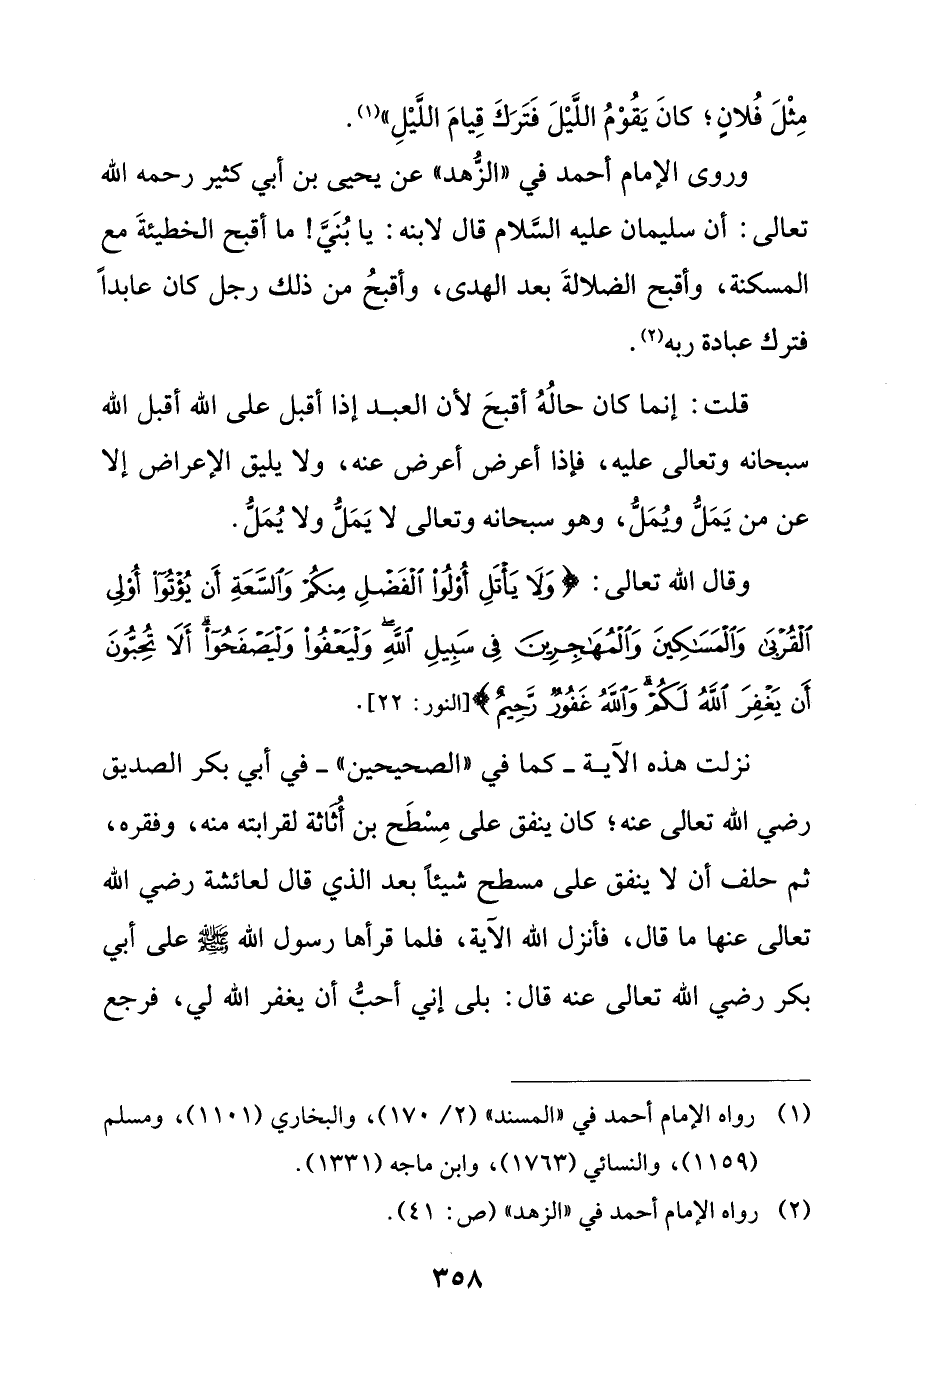 مِثْلَ فُلانٍ؛ كانَ يَقُوْمُ اللَّيْلَ فَتَرَكَ قِيامَ اللَّيْلِ»(١).
وروى الإمام أحمد في «الزُّهد» عن يحيى بن أبي كثير رحمه الله
تعالى: أن سليمان عليه السَّلام قال لابنه: يا بُنَيَّ! ما أقبح الخطيئةَ مع
المسكنة، وأقبح الضلالةَ بعد الهدى، وأقبحُ من ذلك رجل كان عابداً
فترك عبادة ربه(٢).
قلت: إنما كان حالُهُ أقبحَ لأن العبـد إذا أقبل على الله أقبل الله
سبحانه وتعالى عليه، فإذا أعرض أعرض عنه، ولا يليق الإعراض إلا
عن من يَمَلُّ ويُمَلُّ، وهو سبحانه وتعالى لا يَمَلُّ ولا يُمَلُّ.
وقال الله تعالى: ﴿وَلَا يَأْتَلِ أُوْلُواْ ٱلْفَضْلِ مِنكُمْ وَٱلسَّعَةِ أَن يُؤْتُوٓاْ أُوْلِى
ٱلْقُرْبَىٰ وَٱلْمَسَٰكِينَ وَٱلْمُهَٰجِرِينَ فِى سَبِيلِ ٱللَّهِ ۖ وَلْيَعْفُواْ وَلْيَصْفَحُوٓاْ ۗ أَلَا تُحِبُّونَ
أَن يَغْفِرَ ٱللَّهُ لَكُمْ ۗ وَٱللَّهُ غَفُورٌ رَّحِيمٌ﴾[النور: ٢٢].
نزلت هذه الآيـة ـ كما في «الصحيحين» ـ في أبي بكر الصديق
رضي الله تعالى عنه؛ كان ينفق على مِسْطَح بن أُثَاثة لقرابته منه، وفقره،
ثم حلف أن لا ينفق على مسطح شيئاً بعد الذي قال لعائشة رضي الله
تعالى عنها ما قال، فأنزل الله الآية، فلما قرأها رسول الله ﷺ على أبي
بكر رضي الله تعالى عنه قال: بلى إني أحبُّ أن يغفر الله لي، فرجع
(١) رواه الإمام أحمد في «المسند» (٢/ ١٧٠)، والبخاري (١١٠١)، ومسلم
(١١٥٩)، والنسائي (١٧٦٣)، وابن ماجه (١٣٣١).
(٢) رواه الإمام أحمد في «الزهد» (ص: ٤١).
٣٥٨